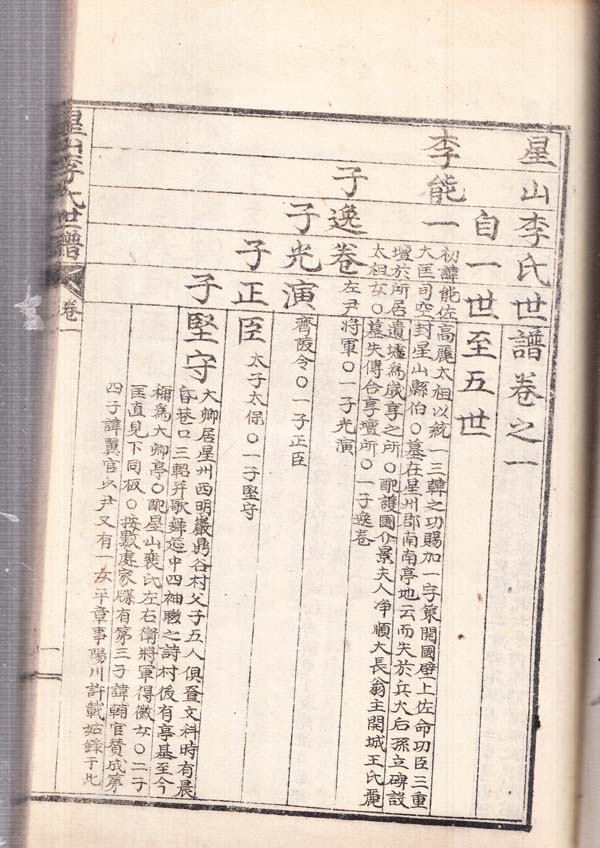 星山李氏世譜卷之一
自一世至五世
李能一
初諱能佐高麗太祖以統一三韓之功賜加一字策開國壁上佐命功臣三重
大匡司空封星山縣伯○墓在星州郡南南亭地云而失於兵火后孫立碑設
壇於所居遺墟爲歲享之所○配護國介景夫人净順大長翁主開城王氏麗
太祖女○墓失傳合享壇所○一子逸卷
子逸卷
左尹將軍○一子光演
子光演
齊陵令○一子正臣
子正臣
太子太保○一子堅守
子堅守
大卿居星州西明巖鼎谷村父子五人俱登文科時有晨
昏巷口三軺幷歌舞筵中四袖聯之詩村後有亭基至今
稱爲大卿亭○配星山裵氏左右衛將軍得徵女○二子
匡直見下同板○按數處家牒有第三子諱輔官贊成第
四子諱翼官少尹又有一女平章事陽川許載姑錄于此
星山李氏世譜
卷一
一